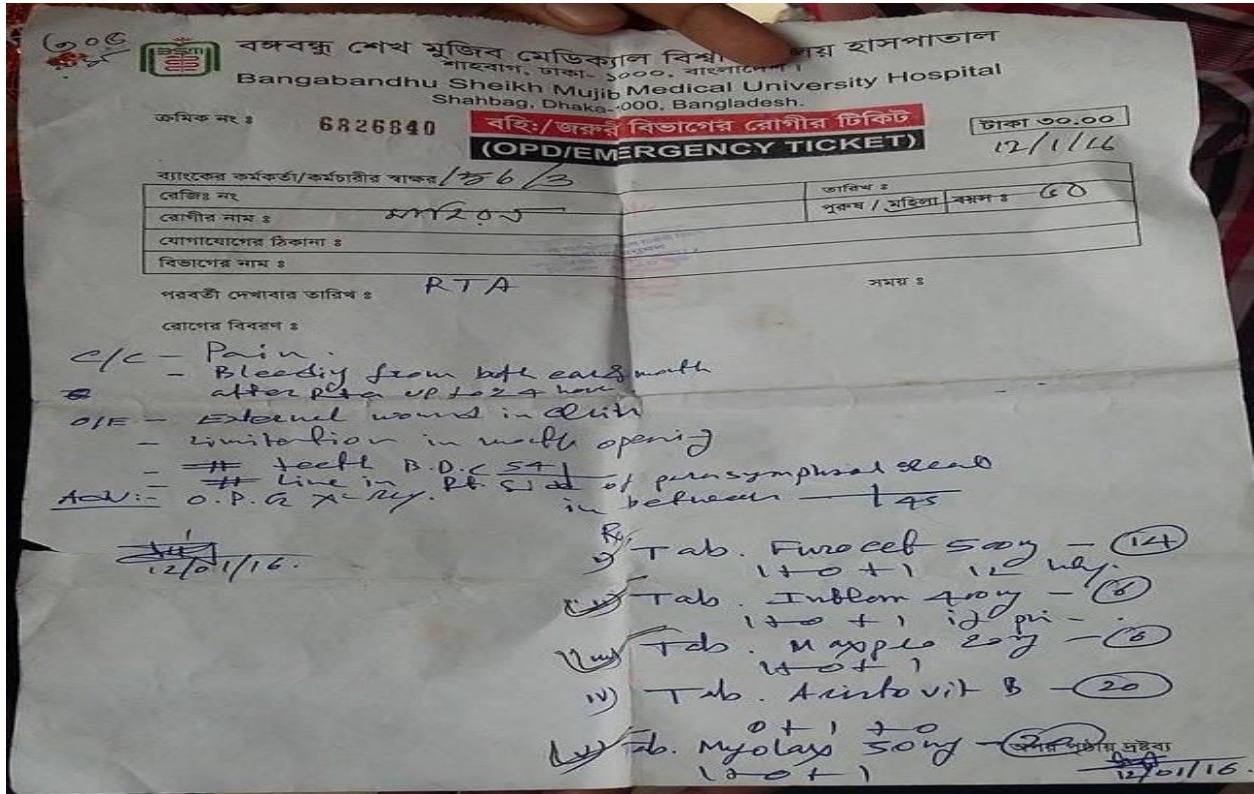 ৩০৫
বঙ্গবন্ধু শেখ মুজিব মেডিক্যাল হাসপাতাল
শাহবাগ, ঢাকা- ১০০০, বাংলাদেশ।
Bangabandhu Sheikh Mujib Medical University Hospital
Shahbag, Dhaka-1000, Bangladesh.
ক্রমিক নং ঃ 6826840 বহিঃ/জরুরি বিভাগের রোগীর টিকিট টাকা ৩০.০০
(OPD/EMERGENCY TICKET) 12/1/16
ব্যাংকের কর্মকর্তা/কর্মচারীর স্বাক্ষর
রেজিঃ নং তারিখ ঃ
রোগীর নাম ঃ পুরুষ / মহিলা বয়স ঃ ৫০
যোগাযোগের ঠিকানা ঃ
বিভাগের নাম ঃ
পরবর্তী দেখাবার তারিখ ঃ RTA সময় ঃ
রোগের বিবরণ ঃ
C/C - Pain.
- Bleeding from both ear & mouth
after RTA up to 24 hour.
O/E - External wound in
- Limitation in mouth opening
- # teeth B.D.C 54
- # Line in Rt. side of parasymphseal
in between 45
Adv:- O.P.G X-Ray.
12/01/16.
Rx
i) Tab. Furocef 500mg - 14
1+0+1 12 hrly.
ii) Tab. 400mg
1+0+1
iii) Tab. Maxpro 20mg
1+0+1
iv) Tab. Aristovit B - 20
0+1+0
v) Tab. Myolax 50mg - 20
1+0+1
অপর পৃষ্ঠায় দ্রষ্টব্য
12/01/16.